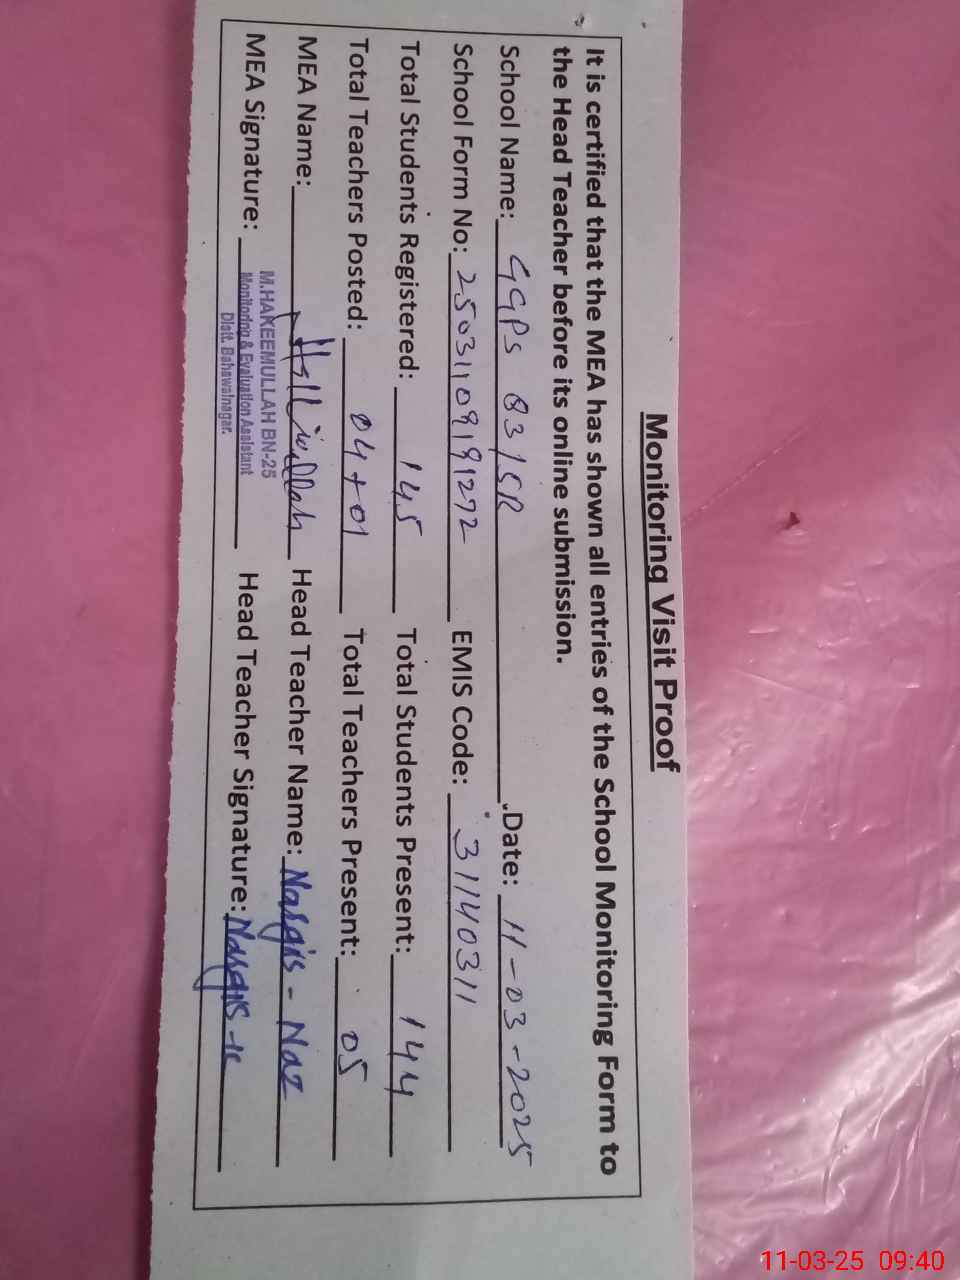 Monitoring Visit Proof
It is certified that the MEA has shown all entries of the School Monitoring Form to
the Head Teacher before its online submission.
School Name: GGPS 83/5R Date: 11-03-2025
School Form No: 25031109191272 EMIS Code: 31140311
Total Students Registered: 145 Total Students Present: 144
Total Teachers Posted: 04+01 Total Teachers Present: 05
MEA Name: Head Teacher Name: Nargis - Naz
MEA Signature: M.HAKEEMULLAH BN-25 Head Teacher Signature: Nargis
Monitoring & Evaluation Assistant
Distt. Bahawalnagar.
11-03-25 09:40